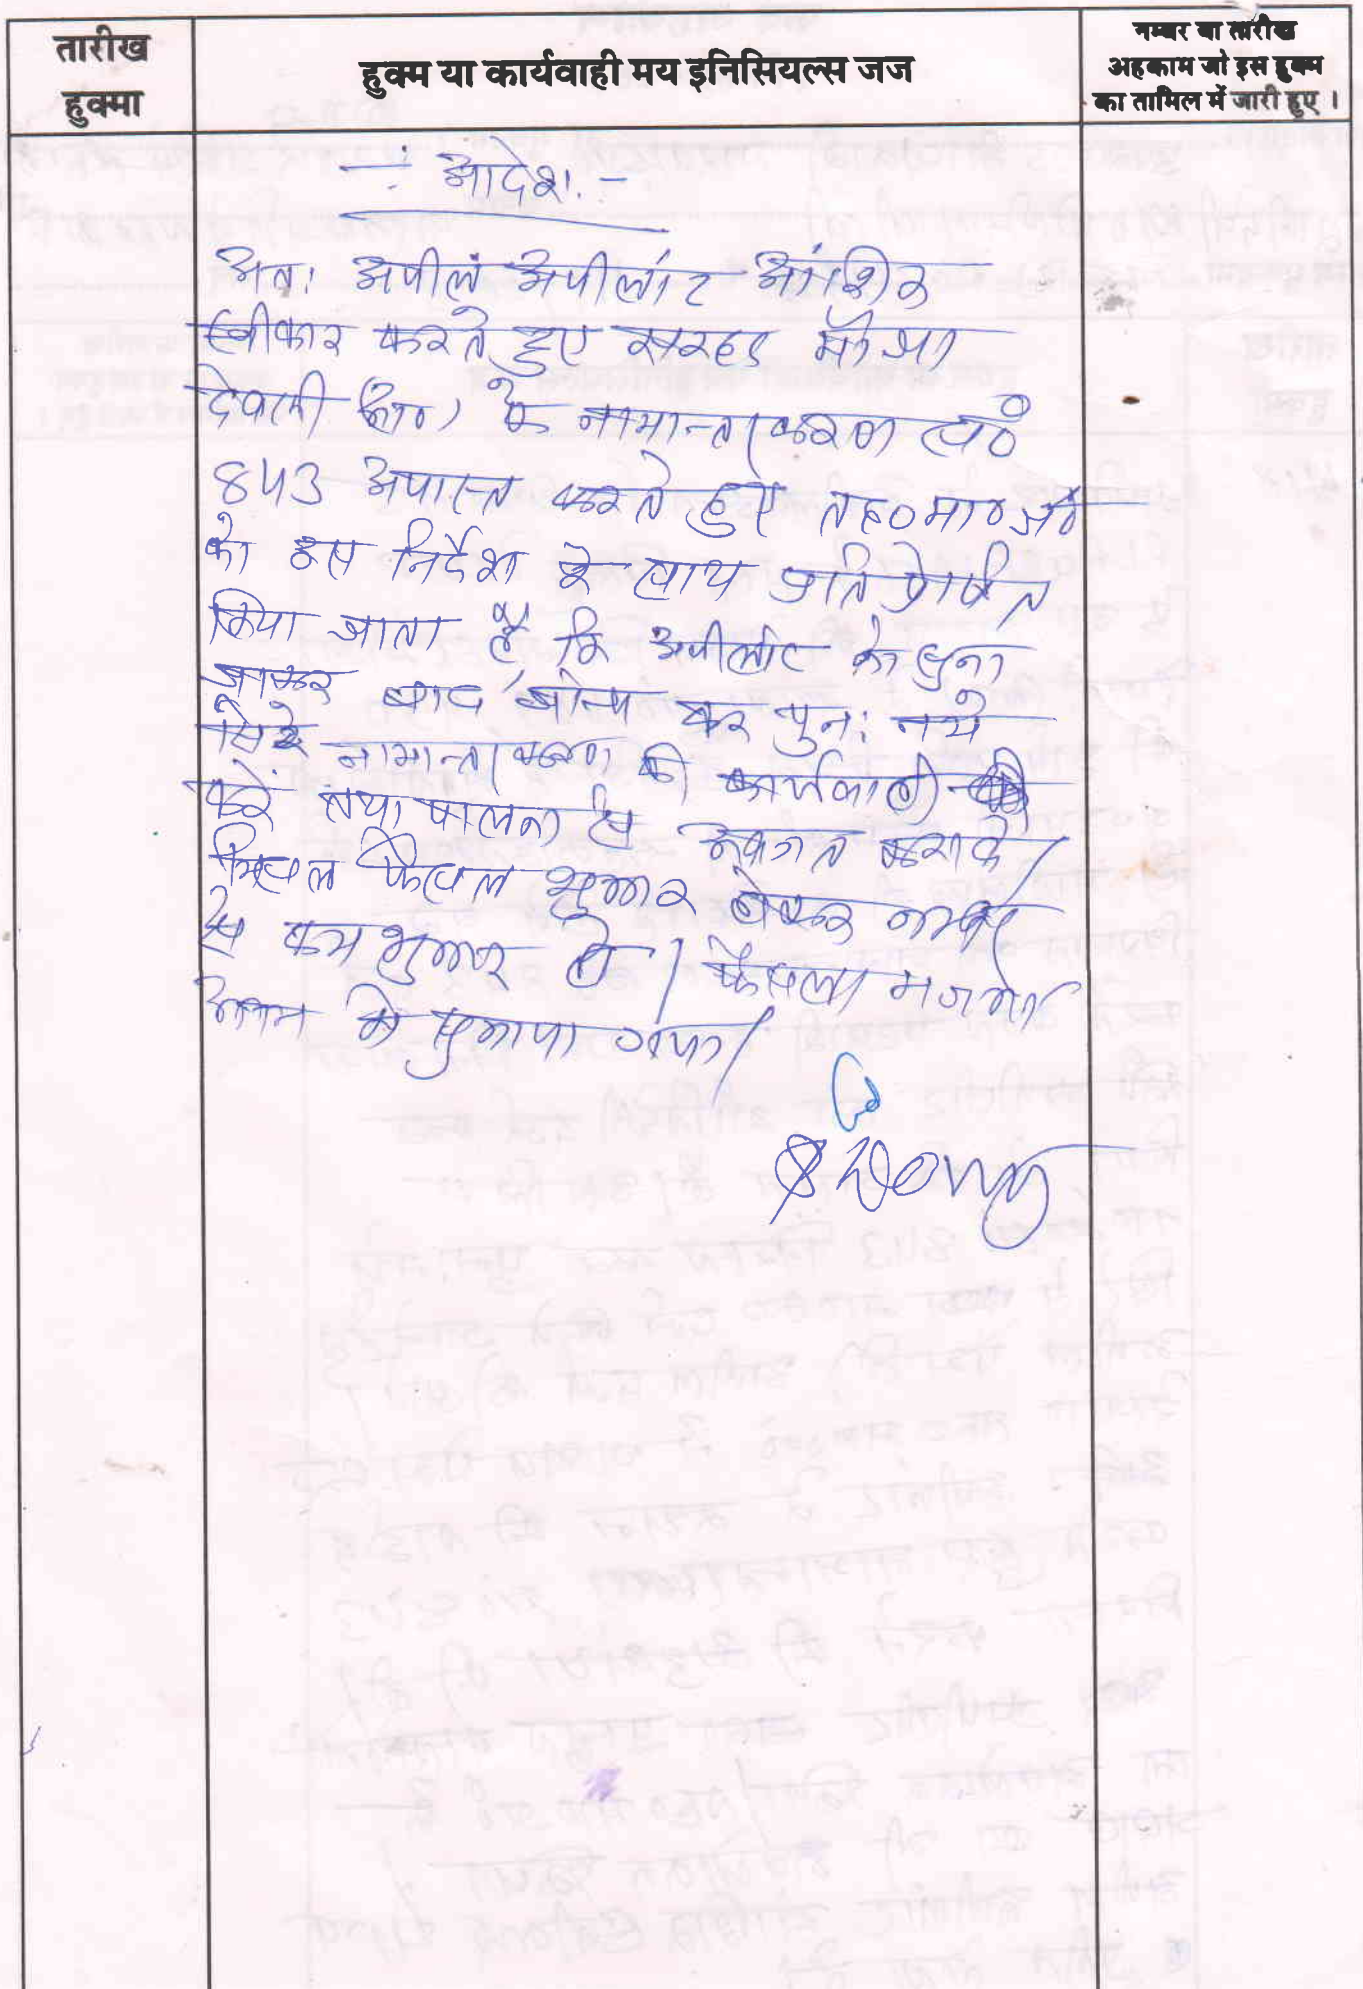 तारीख
हुक्मा
हुक्म या कार्यवाही मय इनिसियल्स जज
नम्बर बा तारीख
अहकाम जो इस हुक्म
का तामिल में जारी हुए ।
-: आदेश :-
अतः अपील अपीलांट आंशिक
स्वीकार करते हुए सरहद मौजा
देवली के नामान्तरकरण सं०
843 अपास्त करते हुए तह०
को इस निर्देश के साथ प्रतिप्रेषित
किया जाता है कि अपीलांट को सुना
जाकर बाद पुनः नये
सिरे नामान्तरकरण की कार्यवाही
करें तथा पालना से अवगत करावे/
मिसल फैसल शुमार होकर नम्बर
से कम शुमार हो / फैसला
को सुनाया गया/